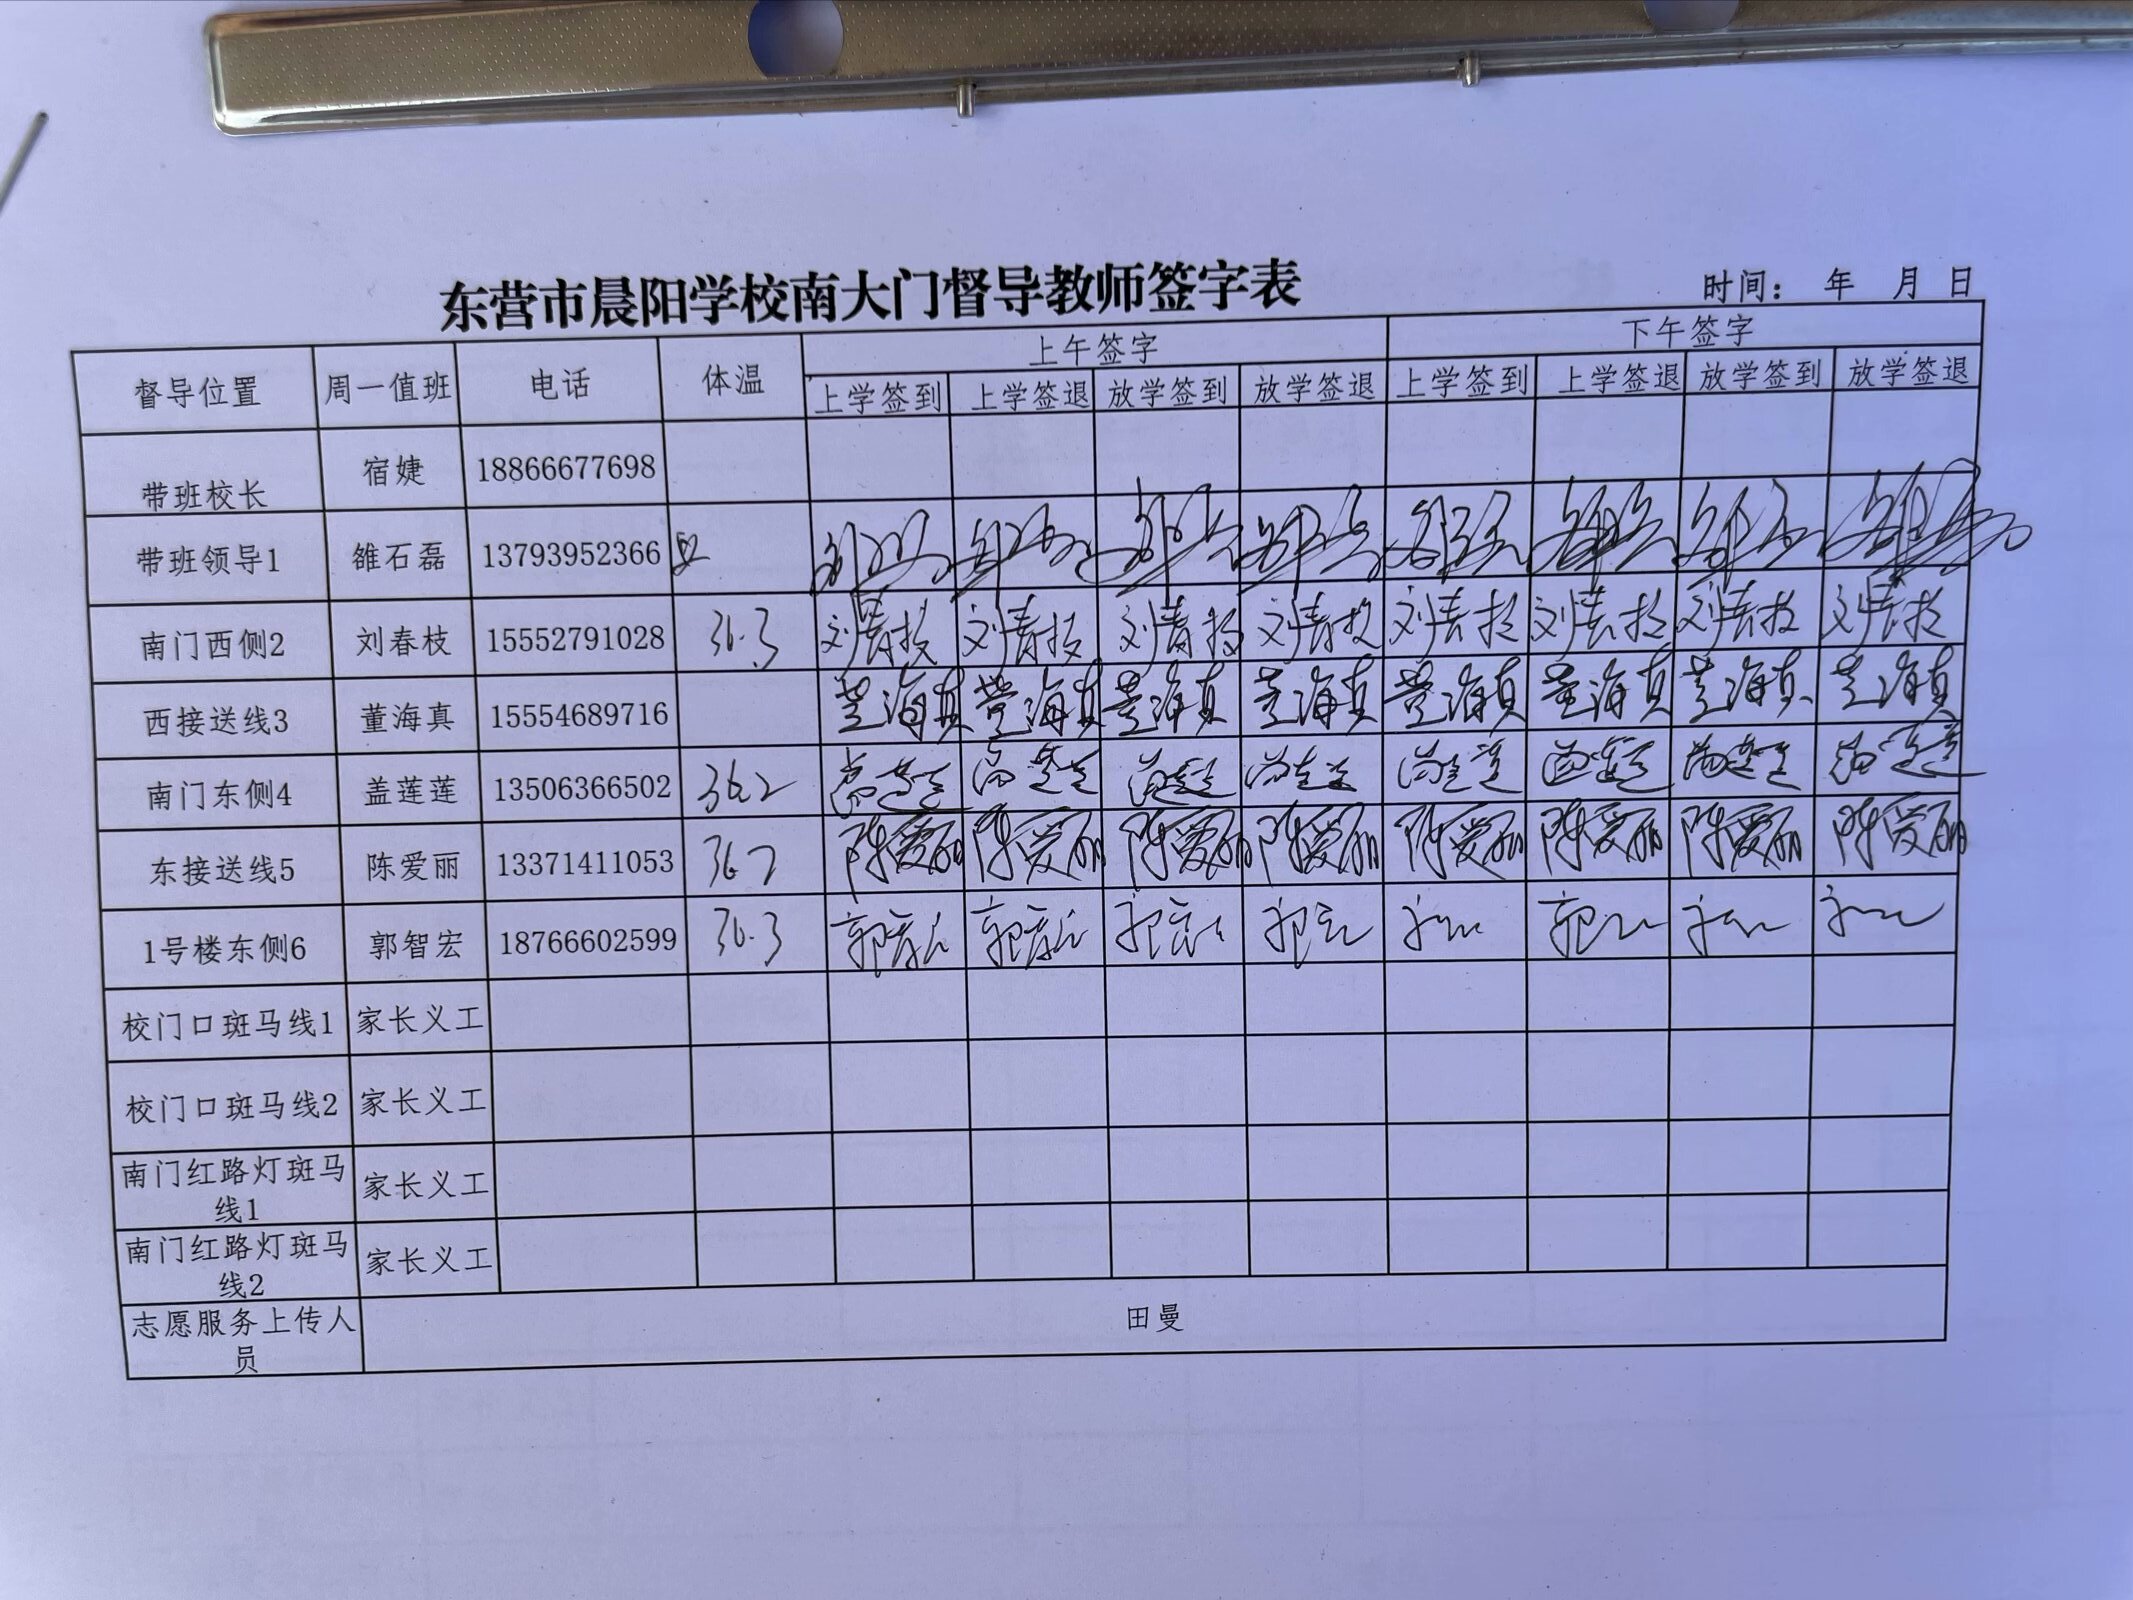 东营市晨阳学校南大门督导教师签字表
时间： 年 月 日
督导位置 周一值班 电话 体温 上午签字 下午签字
上学签到 上学签退 放学签到 放学签退 上学签到 上学签退 放学签到 放学签退
带班校长 宿婕 18866677698
带班领导1 雒石磊 13793952366
南门西侧2 刘春枝 15552791028 36.3 刘春枝 刘春枝 刘春枝 刘春枝 刘春枝 刘春枝 刘春枝 刘春枝
西接送线3 董海真 15554689716 董海真 董海真 董海真 董海真 董海真 董海真 董海真 董海真
南门东侧4 盖莲莲 13506366502 36.2 盖莲莲 盖莲莲 盖莲莲 盖莲莲 盖莲莲 盖莲莲 盖莲莲 盖莲莲
东接送线5 陈爱丽 13371411053 36.2 陈爱丽 陈爱丽 陈爱丽 陈爱丽 陈爱丽 陈爱丽 陈爱丽 陈爱丽
1号楼东侧6 郭智宏 18766602599 36.3
校门口斑马线1 家长义工
校门口斑马线2 家长义工
南门红路灯斑马
线1 家长义工
南门红路灯斑马
线2 家长义工
志愿服务上传人
员 田曼